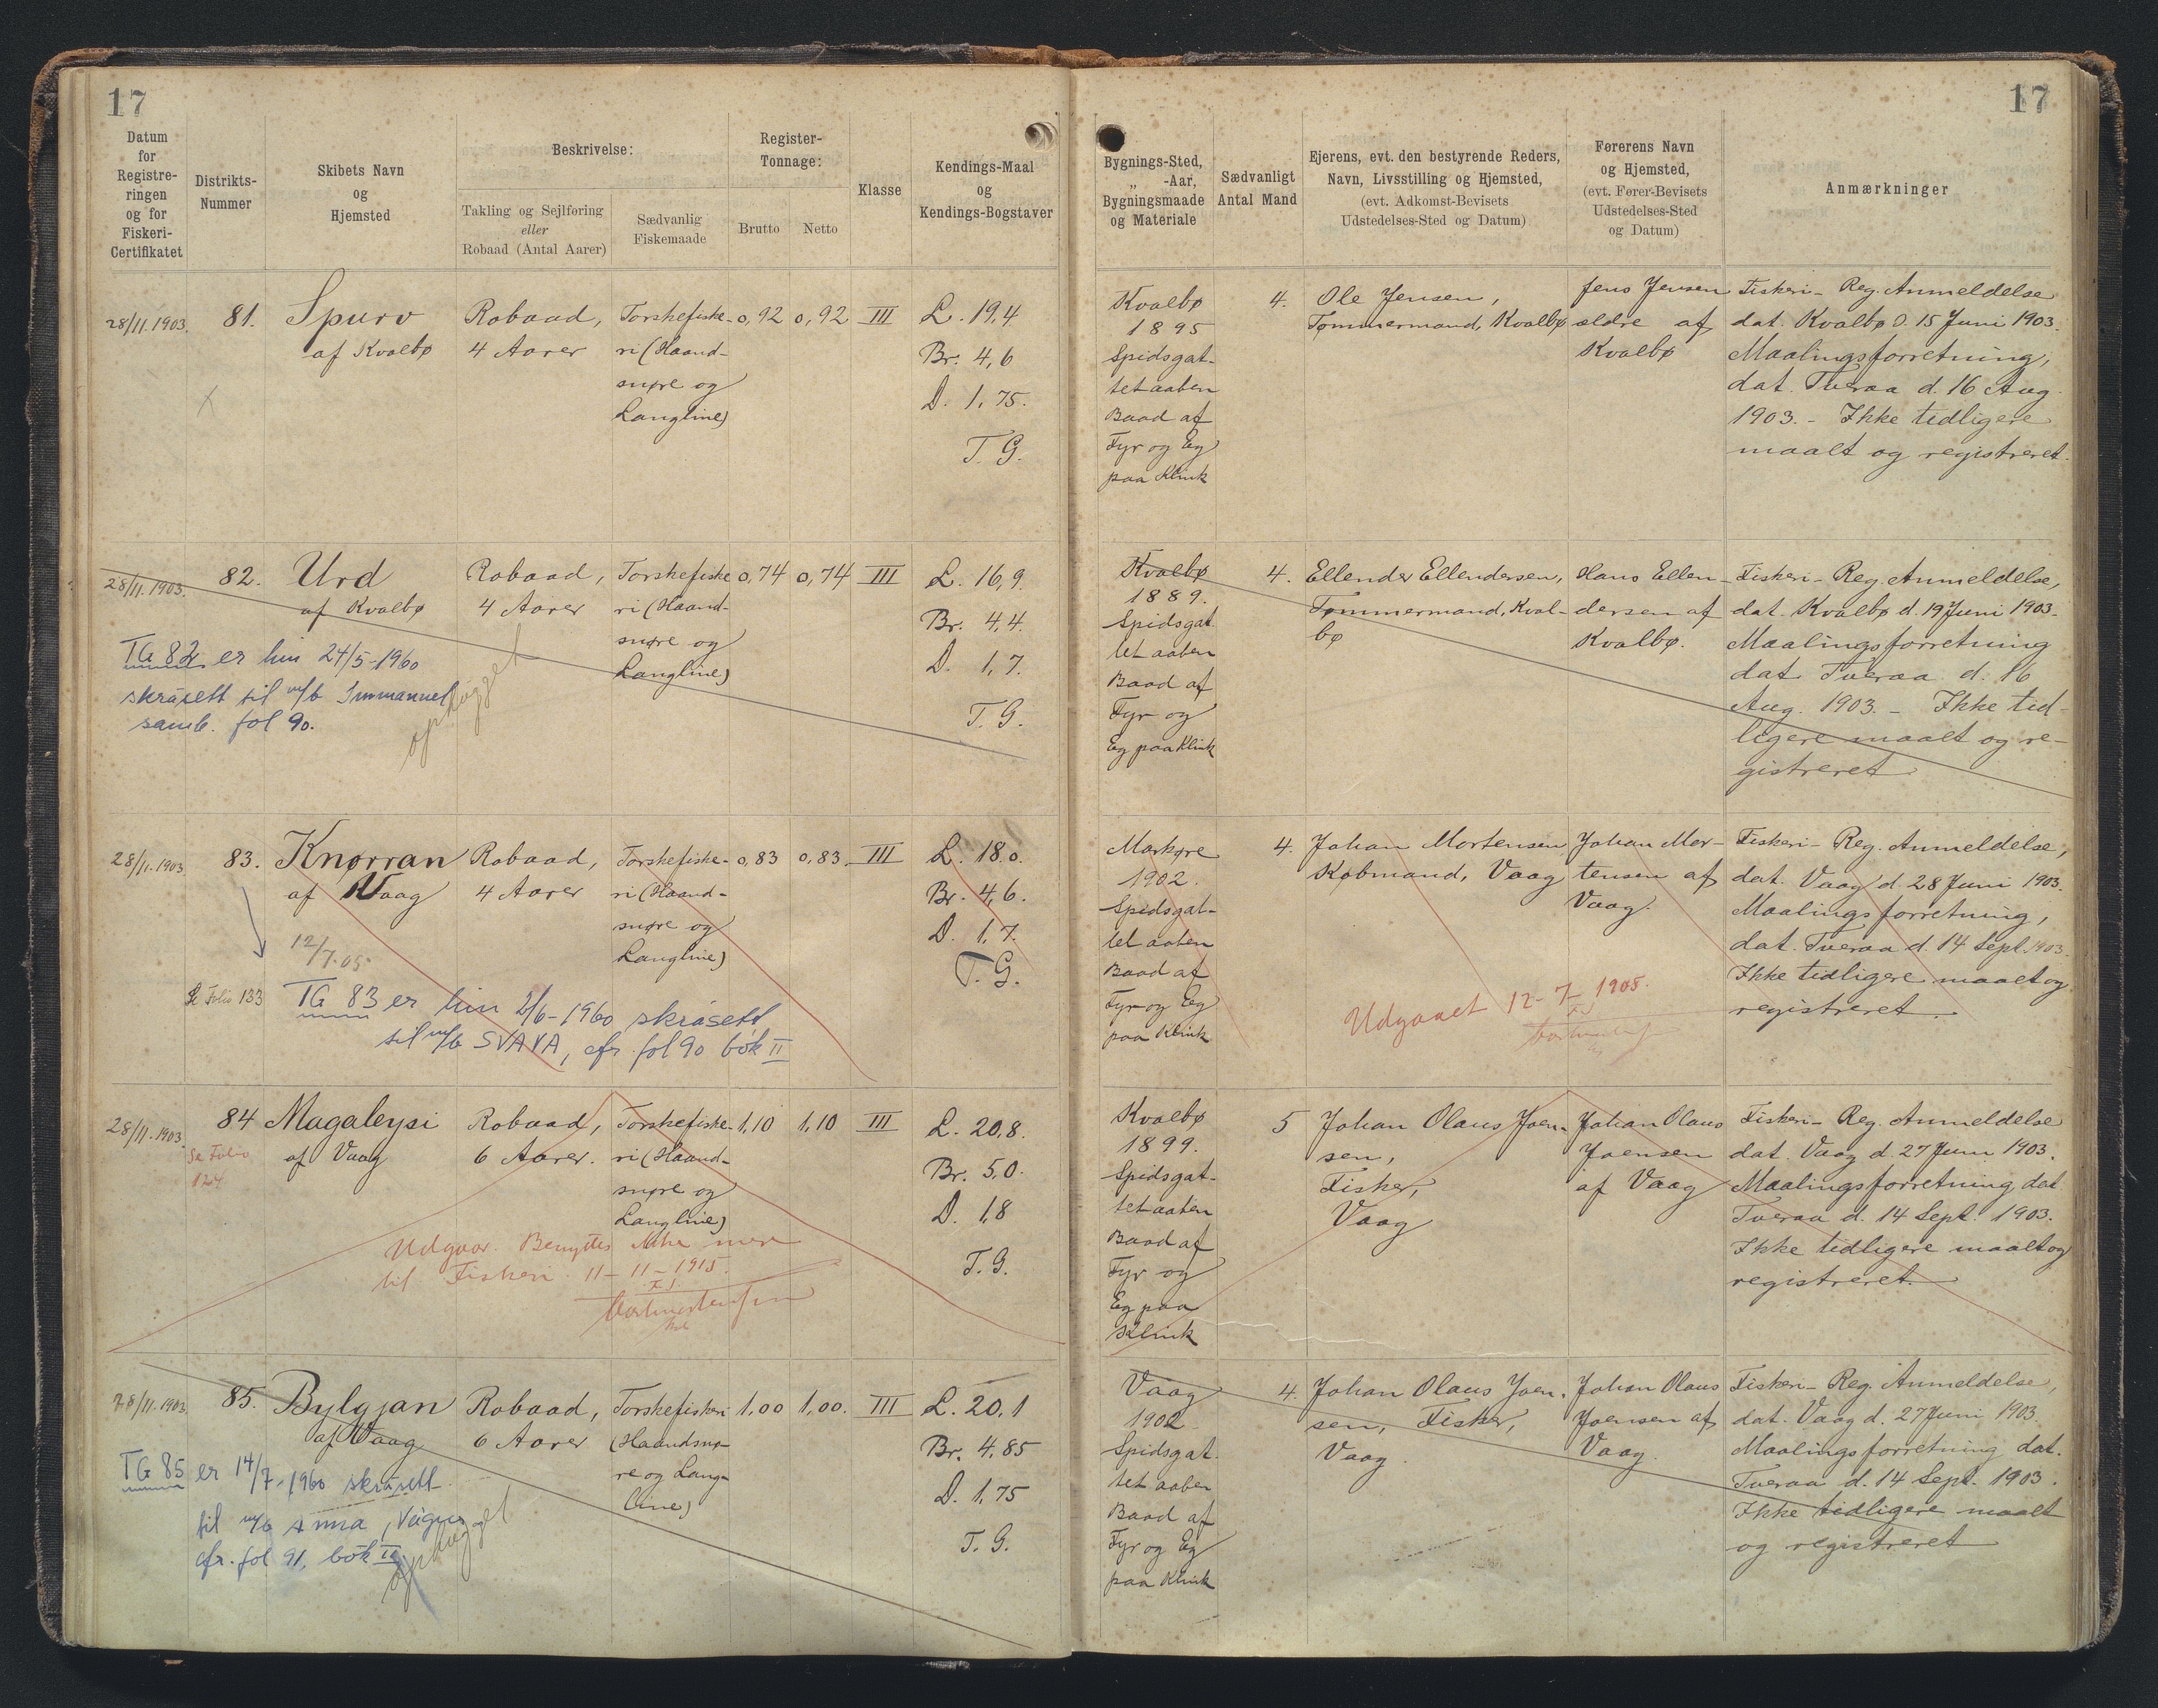 17
17
Datum
for
Registre-
ringen
og for
Fiskeri-
Certifikatet
Distrikts-
Nummer
Skibets Navn
og
Hjemsted
Beskrivelse:
Takling og Sejlføring
eller
Robaad (Antal Aarer)
Sædvanlig
Fiskemaade
Register-
Tonnage:
Brutto
Netto
Klasse
Kendings-Maal
og
Kendings-Bogstaver
Bygnings-Sted,
„ -Aar,
Bygningsmaade
og Materiale
Sædvanligt
Antal Mand
Ejerens, evt. den bestyrende Reders,
Navn, Livsstilling og Hjemsted,
(evt. Adkomst-Bevisets
Udstedelses-Sted og Datum)
Førerens Navn
og Hjemsted,
(evt. Fører-Bevisets
Udstedelses-Sted
og Datum)
Anmærkninger
28/11.1903.
81.
Spurv
af Kvalbø
Robaad,
4 Aarer
Torskefiske-
ri (Haand-
snøre og
Langline)
0,92
0,92
III
L. 19,4
Br. 4,6
D. 1,75.
T. G.
Kvalbø
1895
Spidsgat-
tet aaben
Baad af
Fyr og Eg
paa Klink
4.
Ole Jensen,
Tømmermand, Kvalbø
Jens Jensen
ældre af
Kvalbø
Fiskeri-Reg. Anmeldelse
dat. Kvalbø d. 15 Juni 1903.
Maalingsforretning,
dat. Tveraa d. 16 Aug.
1903. - Ikke tidligere
maalt og registreret.
28/11.1903.
82.
Urd
af Kvalbø
Robaad,
4 Aarer
Torskefiske
ri (Haand-
snøre og
Langline)
0,74
0,74
III
L. 16,9.
Br. 4,4.
D. 1,7.
T. G.
TG 82 er hin 24/5-1960
skrásett til m/b Immanuel
samb. fol 90.
ophugget
Kvalbø
1889.
Spidsgat
tet aaben
Baad af
Fyr og
Eg paa Klink
4.
Ellender Ellendersen,
Tømmermand, Kval-
bø
Hans Ellen-
dersen af
Kvalbø.
Fiskeri-Reg. Anmeldelse,
dat. Kvalbø d. 19 Juni 1903.
Maalingsforretning
dat. Tveraa d. 16
Aug. 1903. - Ikke tid-
ligere maalt og re-
gistreret
28/11.1903
83.
Knørran
af Vaag
Robaad,
4 Aarer
Torskefiske-
ri (Haand-
snøre og
Langline)
0,83
0,83
III
L. 18,0.
Br. 4,6.
D. 1,7.
T. G.
12/7.05
Se Folio 133
TG 83 er hin 2/6-1960 skrásett
til m/b SVAVA, cfr. fol 90 bók II
Markøre
1902.
Spidsgat-
tet aaben
Baad af
Fyr og Eg
paa Klink
4.
Johan Mortensen
Købmand, Vaag
Johan Mor-
tensen af
Vaag.
Udgaaet 12-7-1905.
Fiskeri-Reg. Anmeldelse,
dat. Vaag d. 28 Juni 1903.
Maalingsforretning,
dat. Tveraa d. 14 Sept. 1903.
Ikke tidligere maalt og
registreret.
28/11.1903.
Se Folio
84
Magaleysi
af Vaag
Robaad,
6 Aarer.
Torskefiske-
ri (Haand-
snøre og
Langline)
1,10
1,10
III
L. 20,8.
Br. 5,0.
D. 1,8
T. G.
Udgaar. Benyttes ikke mere
til Fiskeri 11-11-1915.
Kvalbø
1899.
Spidsgat-
tet aaben
Baad af
Fyr og
Eg paa
Klink
5
Johan Olaus Joen-
sen,
Fisker,
Vaag
Johan Olaus
Joensen
af Vaag
Fiskeri-Reg. Anmeldelse
dat. Vaag d. 27 Juni 1903.
Maalingsforretning dat
Tveraa d. 14 Sept. 1903.
Ikke tidligere maalt og
registreret.
28/11.1903.
85.
Bylgjan
af Vaag
Robaad,
6 Aarer
Torskefiskeri
(Haandsnø-
re og Lang-
line)
1,00
1,00.
III
L. 20,1
Br. 4,85
D. 1,75
T. G.
TG 85 er 14/7-1960 skrásett
til m/b Anna, Vágur
cfr. fol 91, bók II
ophugget
Vaag
1902
Spidsgat
tet aaben
Baad af
Fyr og Eg
paa Klink
4.
Johan Olaus Joen-
sen, Fisker,
Vaag.
Johan Olaus
Joensen af
Vaag.
Fiskeri-Reg. Anmeldelse,
dat. Vaag d. 27 Juni 1903
Maalingsforretning dat.
Tveraa d. 14 Sept. 1903.
Ikke tidligere maalt
og registreret